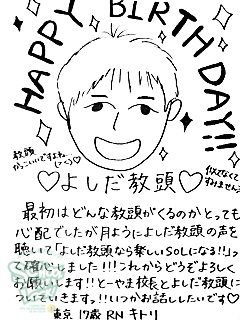 HAPPY BIRTHDAY!!
教頭
かっこいいですよね
似せなくて
すみません
♡よしだ教頭♡
最初はどんな教頭がくるのかとっても
心配でしたが月ようによしだ教頭の声を
聴いて「よしだ教頭なら楽しいSOLになる!!」っ
て確心しました!!!これからどうぞよろしく
お願いします!!とーやま校長とよしだ教頭に
ついていきます。!!いつかお話ししたいです♡
東京 17歳 RN キトリ